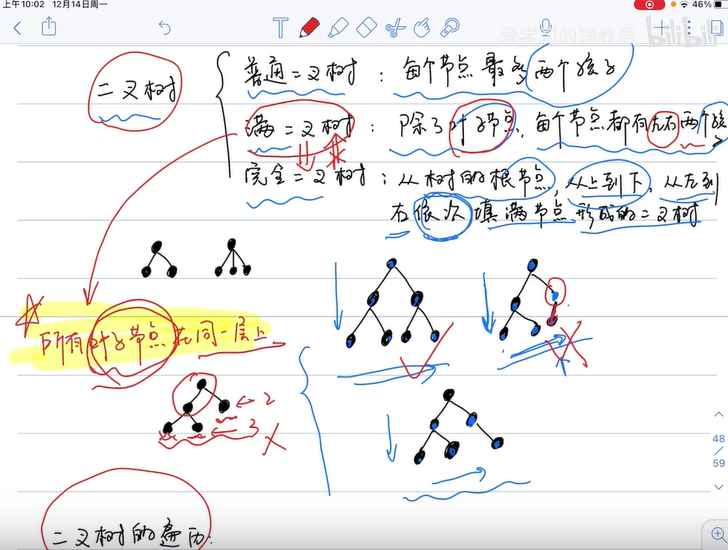 上午10:02 12月14日周一
46%
爱学习的饲养员 bilibili
二叉树
普通二叉树：每个节点最多两个孩子
满二叉树：除了叶子节点，每个节点都有左右两个孩
完全二叉树：从树的根节点，从上到下，从左到
右依次填满节点形成的二叉树
所有叶子节点在同一层上
2
3
48
/
59
二叉树的遍历：